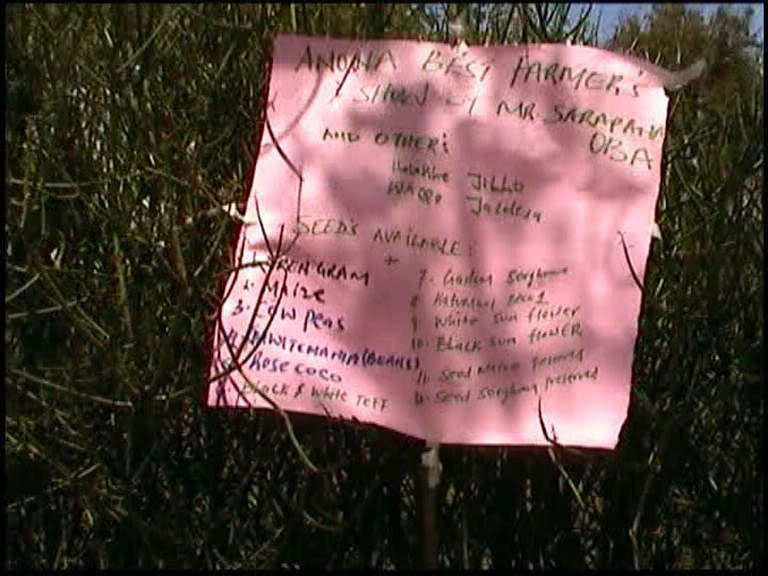 ANONA BEST FARMER'S
SHOW BY MR SARAPATA
OBA
AND OTHER:
JILLO
WAQO Jaldesa
SEED'S AVAILABLE:
1. GREN GRAM
2. Maize
3. COW Peas
4. MWITEMANIA (BEANS)
ROSE COCO
Black & White TEFF
7. Gadam Sorghum
8
9 White sun flower
10. Black sun flowER
11. Seed Maize preserved
12. Seed Sorghum preserved